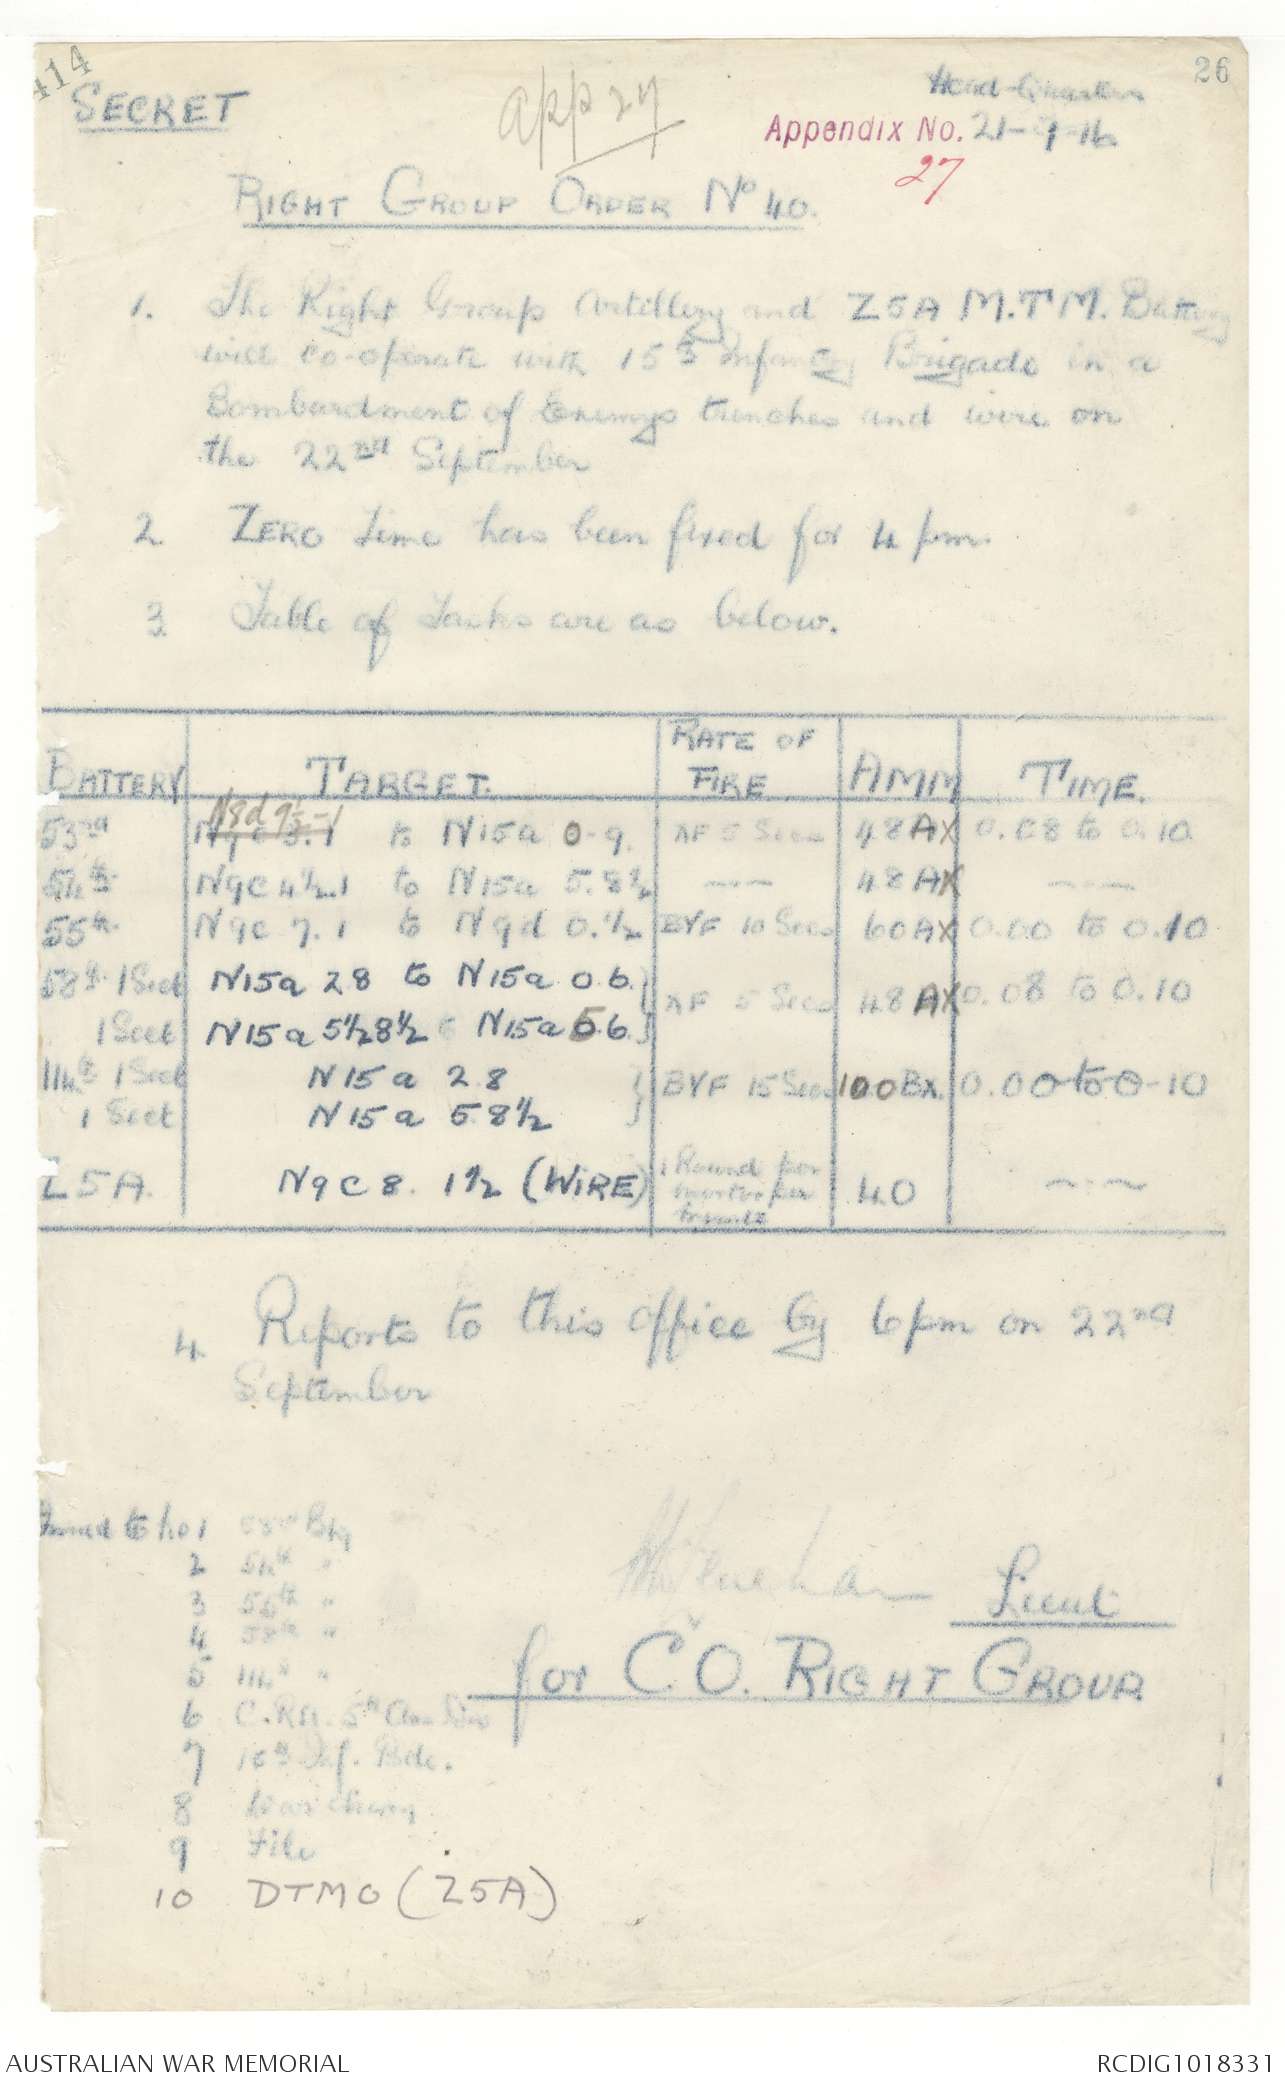 414
26
SECRET
app 27
Head-Quarters
Appendix No. 21-9-16
27
RIGHT GROUP ORDER No 40.
1. The Right Group Artillery and Z5A M.T.M. Battery
will co-operate with 15th Infantry Brigade in a
Bombardment of Enemys trenches and wire on
the 22nd September
2 ZERO time has been fixed for 4 pm.
3 Table of Tasks are as below.
BATTERY TARGET. RATE OF FIRE AMM TIME.
N8d 9½.1
53rd N9c 3.1 to N15a 0.9. AF 5 Secs 48 AX 0.08 to 0.10
54th N9c 4½.1 to N15a 5.8½ —"— 48 AX —"—
55th N9c 7.1 to N9d 0.½ BYF 10 Secs 60 AX 0.00 to 0.10
58th 1 Sect N15a 28 to N15a 0.6. } AF 5 Secs 48 AX 0.08 to 0.10
1 Sect N15a 5½8½ to N15a 5.6. }
114th 1 Sect N15a 2.8 } BYF 15 Secs 100 BX. 0.00 to 0-10
1 Sect N15a 5.8½ }
Z5A. N9c 8. 1½ (WIRE) 1 Round per mortar per minute 40 —"—
4. Reports to this office by 6 pm on 22nd
September
Issued to No 1 53rd Bty
2 54th "
3 55th "
4 58th "
5 114th "
6 C.R.A. 5th Aus Div
7 15th Inf. Bde.
8 War Diary
9 File
10 DTMO (Z5A)
Lieut
for C.O. RIGHT GROUP
AUSTRALIAN WAR MEMORIAL
RCDIG1018331